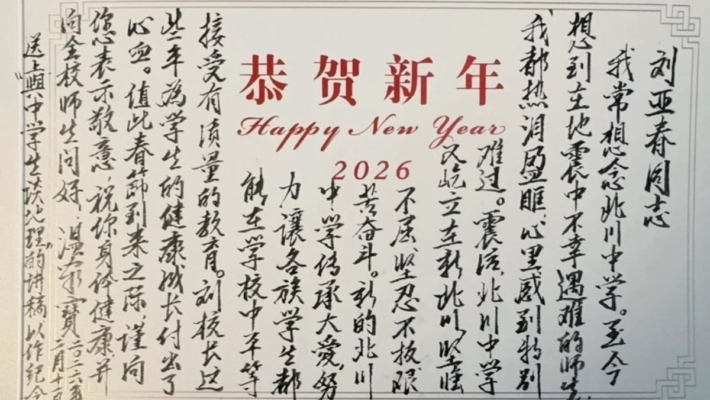 恭贺新年
Happy New Year
2026
刘亚春同志
我常想念北川中学。至今
想到在地震中不幸遇难的师生
我都热泪盈眶,心里感到特别
难过。震后,北川中学
又屹立在新北川,坚强
不屈,坚忍不拔,艰
苦奋斗。新的北川
中学传承大爱,努
力讓各族学生都
能在学校中平等
接受有质量的教育。刘校长这
些年為学生的健康成长付出了
心血。值此春节到来之际,谨向
您表示敬意,祝你身体健康并
向全校师生问好。温家寶
二〇二六年
二月十五
送上《與中学生谈地理》的讲稿,以作纪念